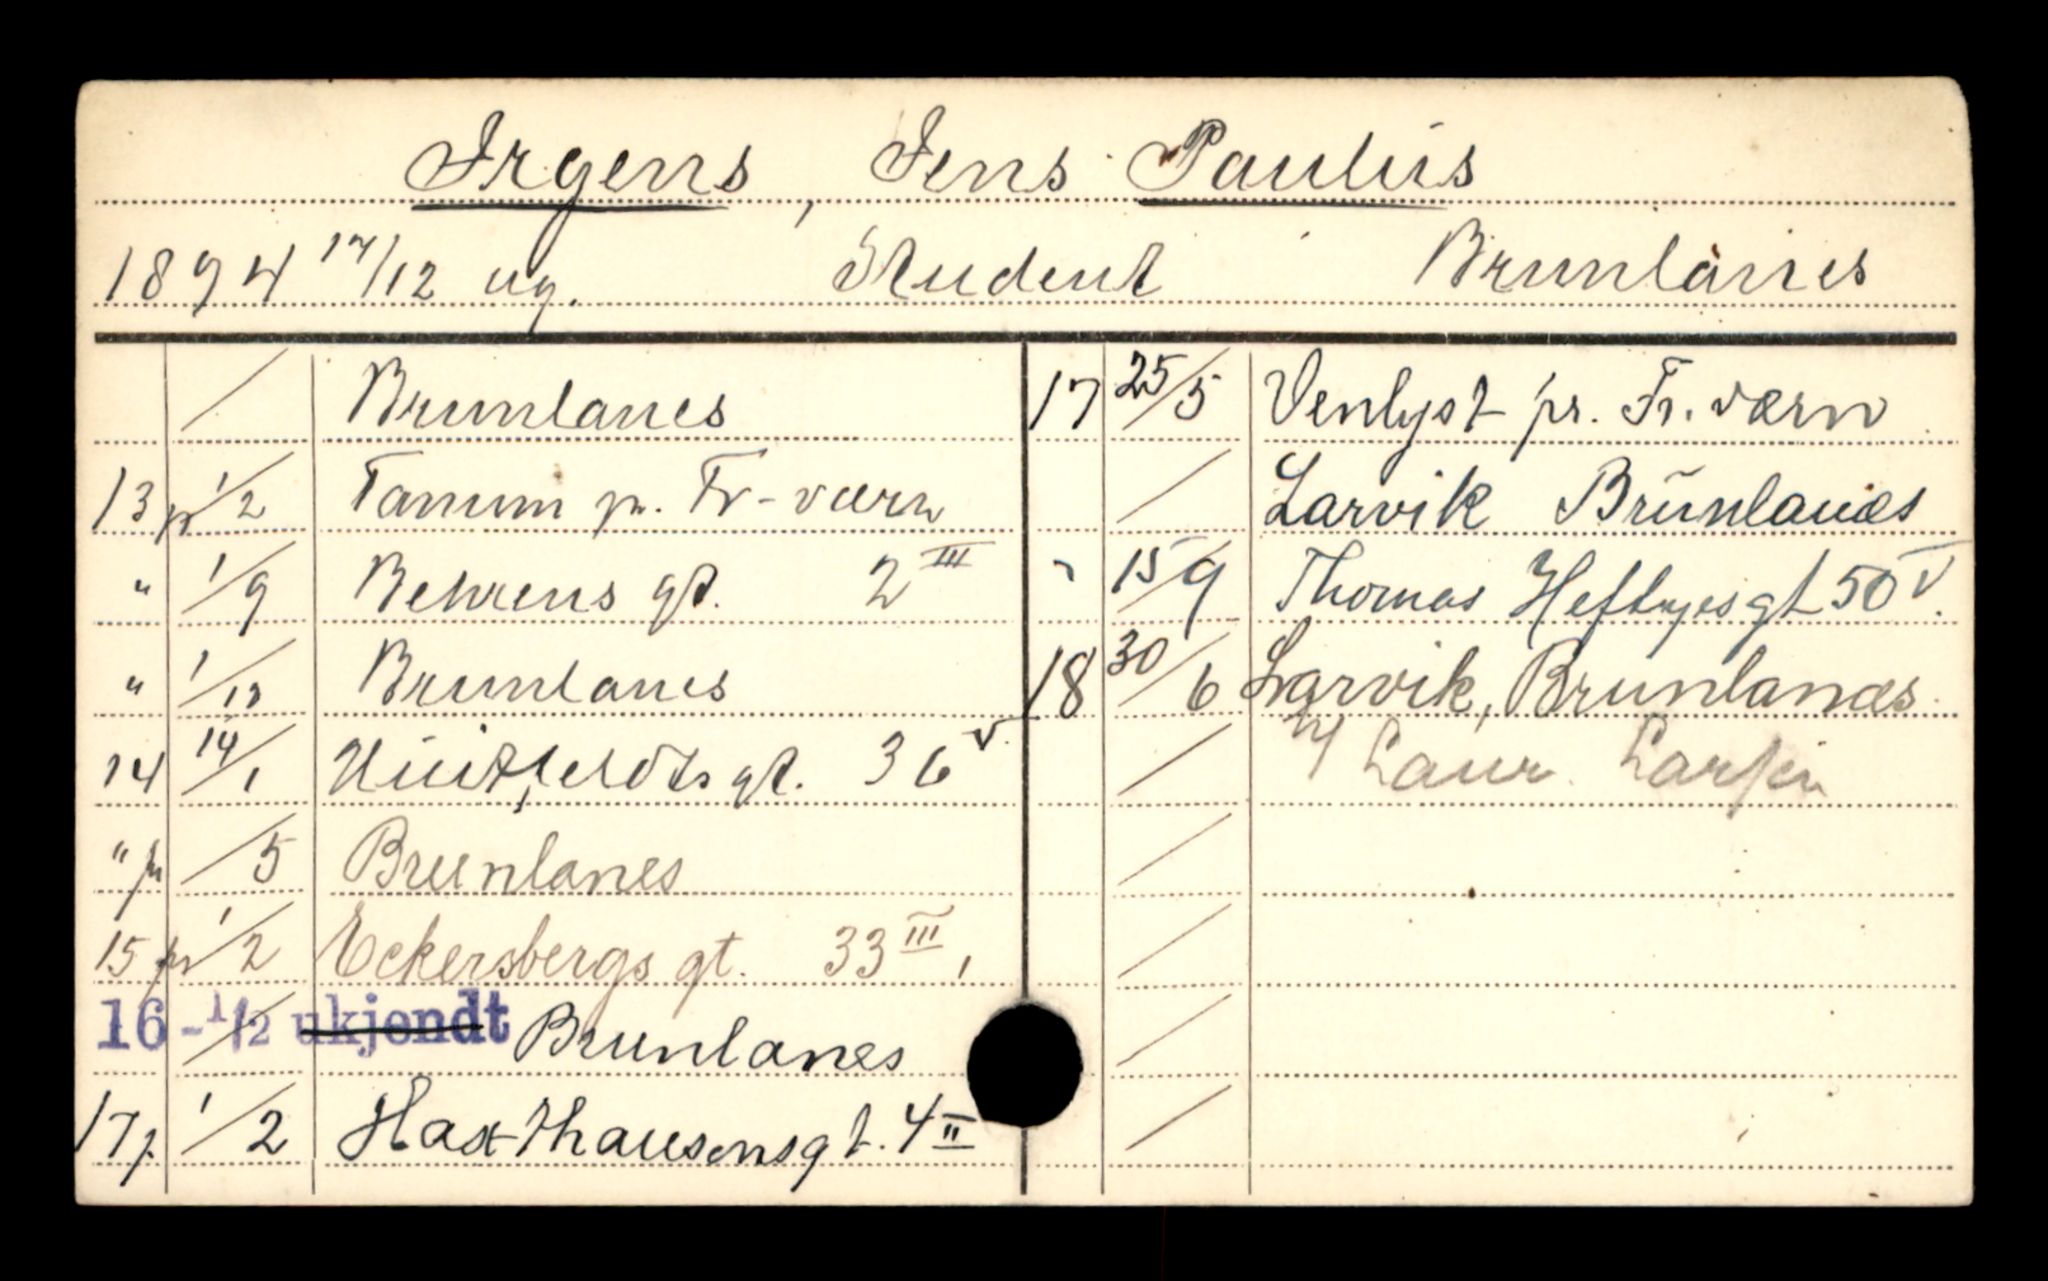 Irgens, Jens Paulus
1894 17/12 ug. Student Brunlanes
/ Brunlanes
13 pr 1/2 Tanum pr. Fr-værn
" 1/9 Behrens gt. 2 III
" 1/12 Brunlanes
14 14/1 Huitfeldts gt. 36 V
" pr /5 Brunlanes
15 pr 1/2 Eckersbergs gt. 33 III
16 - 1/2 ukjendt Brunlanes
17 p. 1/2 Haxthausensgt. 4 II
17 25/5 Venlyst pr. Fr. værn
/ Larvik Brunlanæs
" 15/9 Thomas Heftyesgt 50 V.
18 30/6 Larvik, Brunlanæs
/ Laur. Larsen